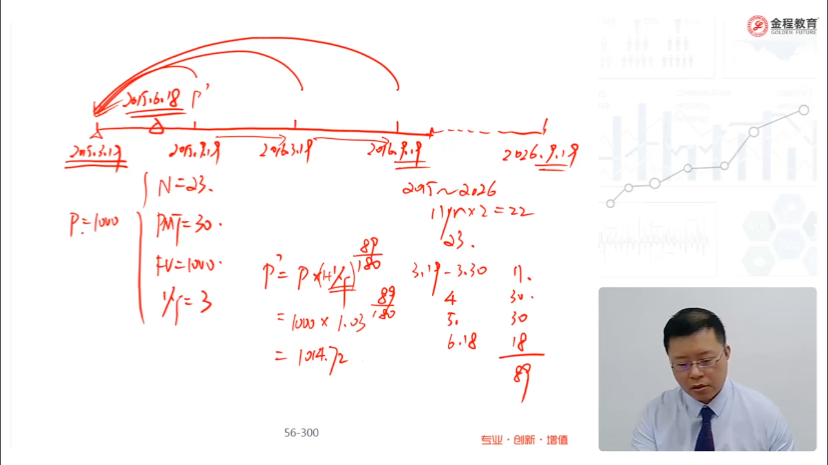 金程教育
GOLDEN FUTURE
2015.6.18 P'
2015.3.19 2015.9.19 2016.3.19 2016.9.19 2026.9.19
N=23.
P=1000
PMT=30.
FV=1000.
I/Y=3
2015~2026
11yr×2=22
23.
P'=P×(1+I/Y)^89/180
=1000×1.03^89/180
=1014.72
3.19-3.30 11.
4 30.
5. 30
6.18 18
89
56-300
专业·创新·增值